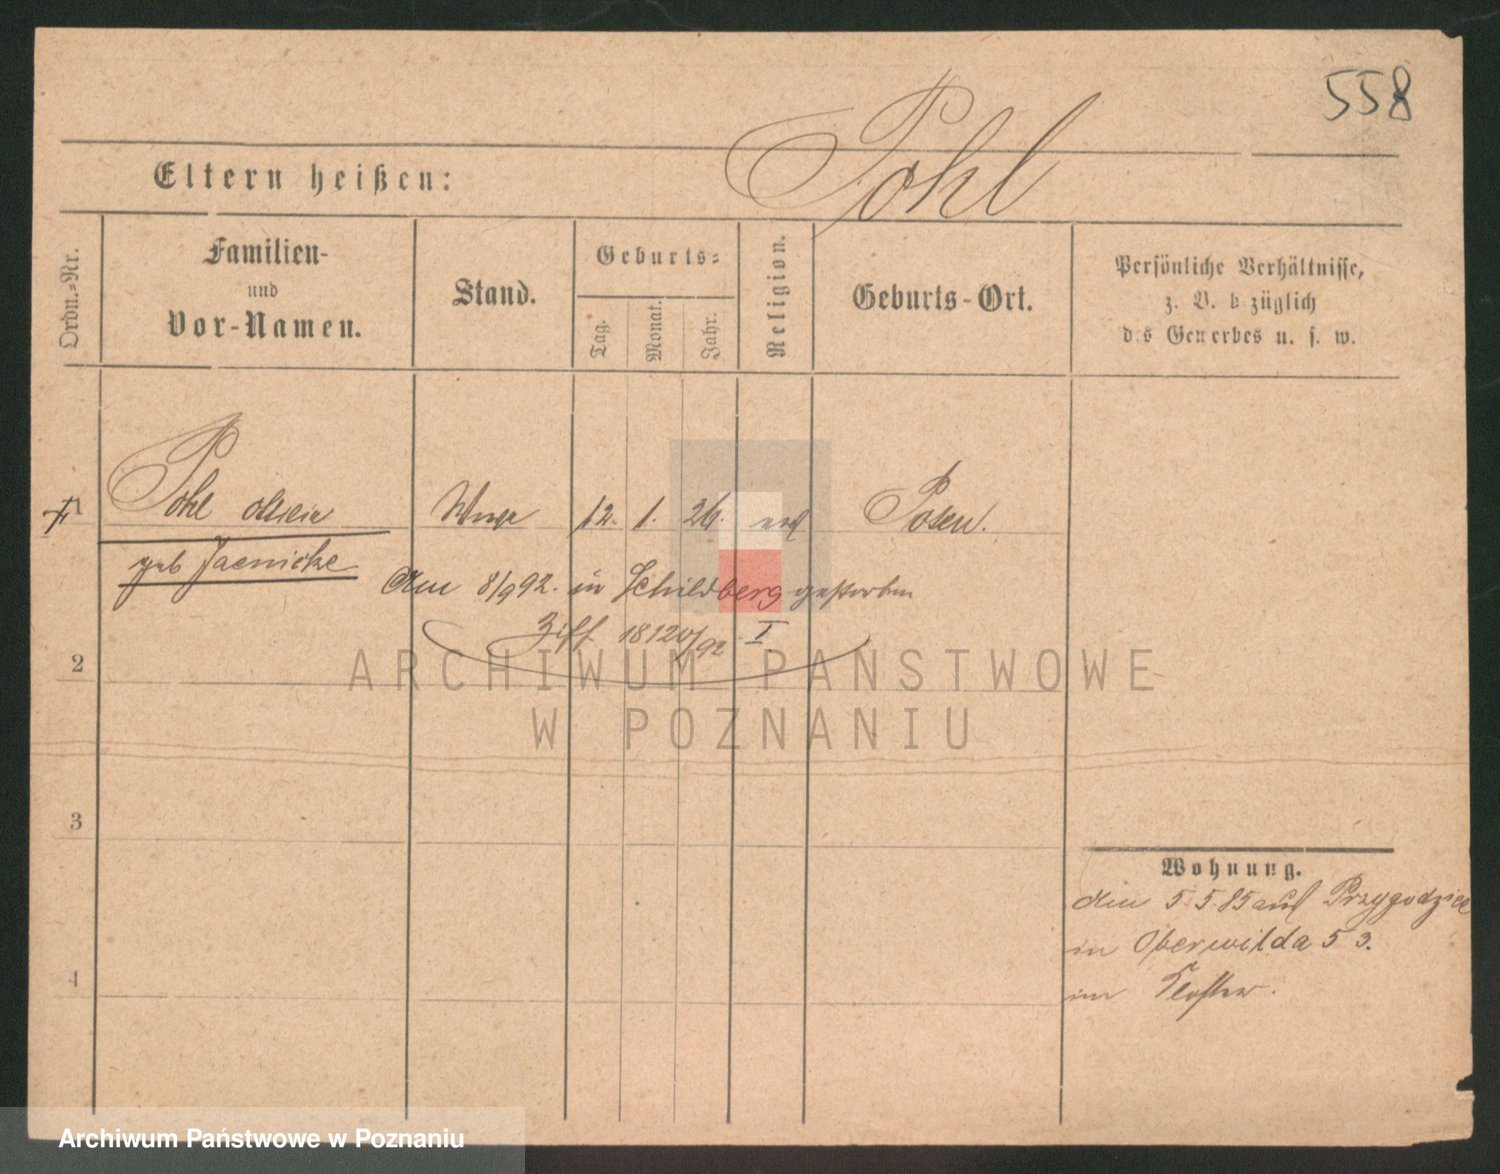 558
Pohl
Eltern heißen:
Ordn.=Nr.
Familien-
und
Vor-Namen.
Stand.
Geburts=
Tag.
Monat.
Jahr.
Religion.
Geburts-Ort.
Persönliche Verhältnisse,
z. B. bezüglich
des Gewerbes u. s. w.
1 Pohl 12. 1. 26. Posen.
geb Jaenicke
Am 8/9 92. in Schildberg gestorben
18120/92 I
2
ARCHIWUM PAŃSTWOWE
W POZNANIU
3
Wohnung.
Am 5.5.85 aus Przygodzice
in Oberwilda 53.
im Kloster.
4
Archiwum Państwowe w Poznaniu